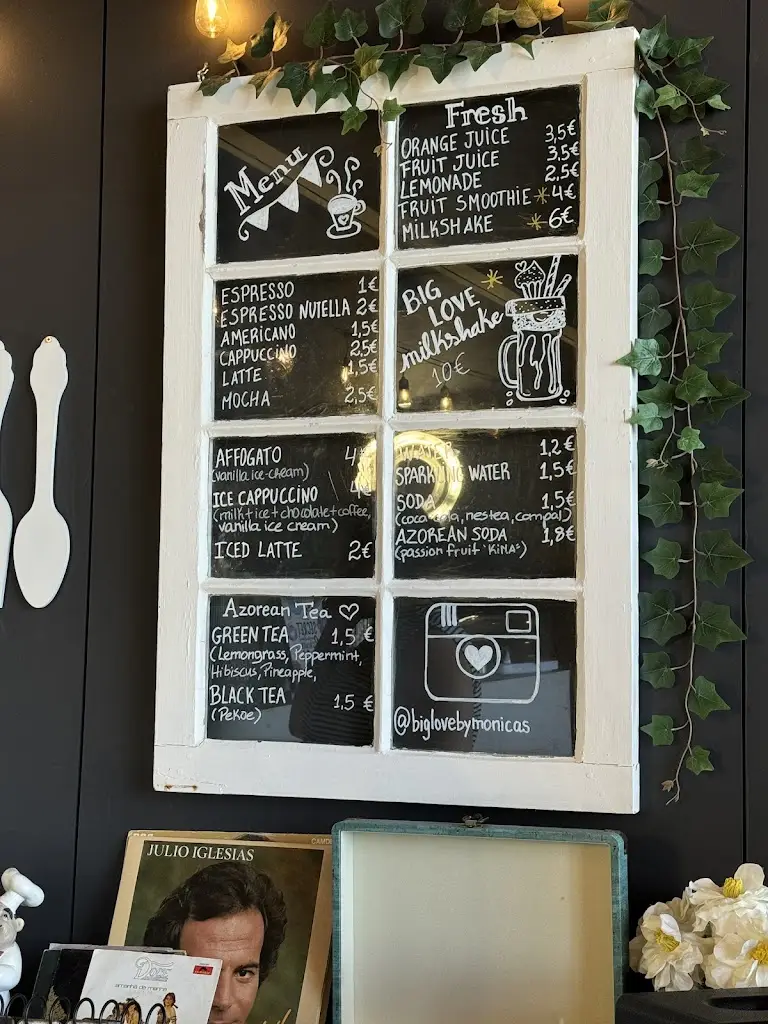 Menu
Fresh
ORANGE JUICE 3,5€
FRUIT JUICE 3,5€
LEMONADE 2,5€
FRUIT SMOOTHIE * 4€
MILKSHAKE * 6€
ESPRESSO 1€
ESPRESSO NUTELLA 2€
AMERICANO 1,5€
CAPPUCCINO 2,5€
LATTE 1,5€
MOCHA 2,5€
BIG
LOVE
milkshake
10€
AFFOGATO 4€
(vanilla ice-cream)
ICE CAPPUCCINO 4€
(milk+ice+chocolate+coffee,
vanilla ice cream)
ICED LATTE 2€
WATER 1,2€
SPARKLING WATER 1,5€
SODA 1,5€
(coca-cola, nestea, compal)
AZOREAN SODA 1,8€
(passion fruit 'KIMA')
Azorean Tea ♡
GREEN TEA 1,5 €
(Lemongrass, Peppermint,
Hibiscus, Pineapple,
BLACK TEA 1.5 €
(Pekoe)
@biglovebymonicas
JULIO IGLESIAS
CAMDEN
Doce
amanhã de manhã